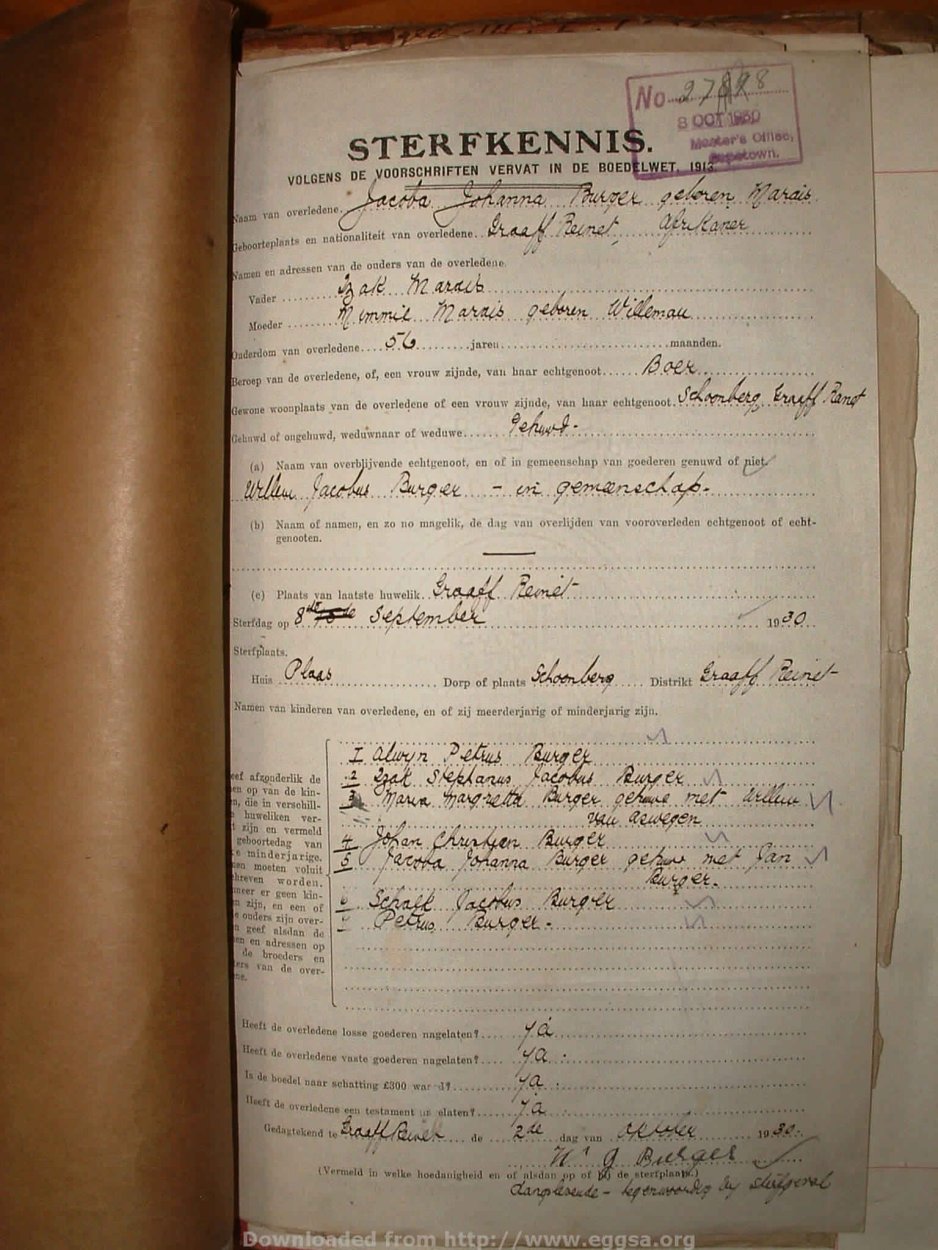 No 27898
8 OCT 1930
Master's Office,
Capetown.
STERFKENNIS.
VOLGENS DE VOORSCHRIFTEN VERVAT IN DE BOEDELWET, 1913.
Naam van overledene. Jacoba Johanna Burger geboren Marais
Geboorteplaats en nationaliteit van overledene. Graaff Reinet, Afrikaner
Namen en adressen van de ouders van de overledene.
Vader Izak Marais
Moeder Mimmie Marais geboren Willemau
Ouderdom van overledene 56 jaren maanden.
Beroep van de overledene, of, een vrouw zijnde, van haar echtgenoot Boer
Gewone woonplaats van de overledene of een vrouw zijnde, van haar echtgenoot Schoonberg, Graaff Reinet
Gehuwd of ongehuwd, weduwnaar of weduwe Gehuwd -
(a) Naam van overblijvende echtgenoot, en of in gemeenschap van goederen gehuwd of niet.
Willem Jacobus Burger - in gemeenschap -
(b) Naam of namen, en zo no magelik, de dag van overlijden van vooroverleden echtgenoot of echt-
genooten.
(c) Plaats van laatste huwelik. Graaff Reinet
Sterfdag op 8ste September 1930
Sterfplaats.
Huis Plaas Dorp of plaats Schoonberg Distrikt Graaff Reinet
Namen van kinderen van overledene, en of zij meerderjarig of minderjarig zijn.
1 Alwyn Petrus Burger
2 Izak Stephanus Jacobus Burger
3 Maria Margretta Burger gehuwd met Willem
van Aswegen
4 Johan Christian Burger
5 Jacoba Johanna Burger gehuwd met Jan
Burger.
6 Schalk Jacobus Burger
7 Petrus Burger -
eef afzonderlik de
en op van de kin-
n, die in verschill-
huweliken ver-
t zijn en vermeld
geboortedag van
e minderjarige.
nen moeten voluit
chreven worden.
neer er geen kin-
n zijn, en een of
e ouders zijn over-
n geef alsdan de
en en adressen op
de broeders en
ters van de over-
ne.
Heeft de overledene losse goederen nagelaten? ja
Heeft de overledene vaste goederen nagelaten? ja
Is de boedel naar schatting £300 waard? ja
Heeft de overledene een testament nagelaten? ja
Gedagtekend te Graaff Reinet de 2de dag van Oktober 1930
W. J. Burger
(Vermeld in welke hoedanigheid en of alsdan op of bij de sterfplaats.)
Langslevende - tegenwoordig by sterfgeval
Downloaded from http://www.eggsa.org